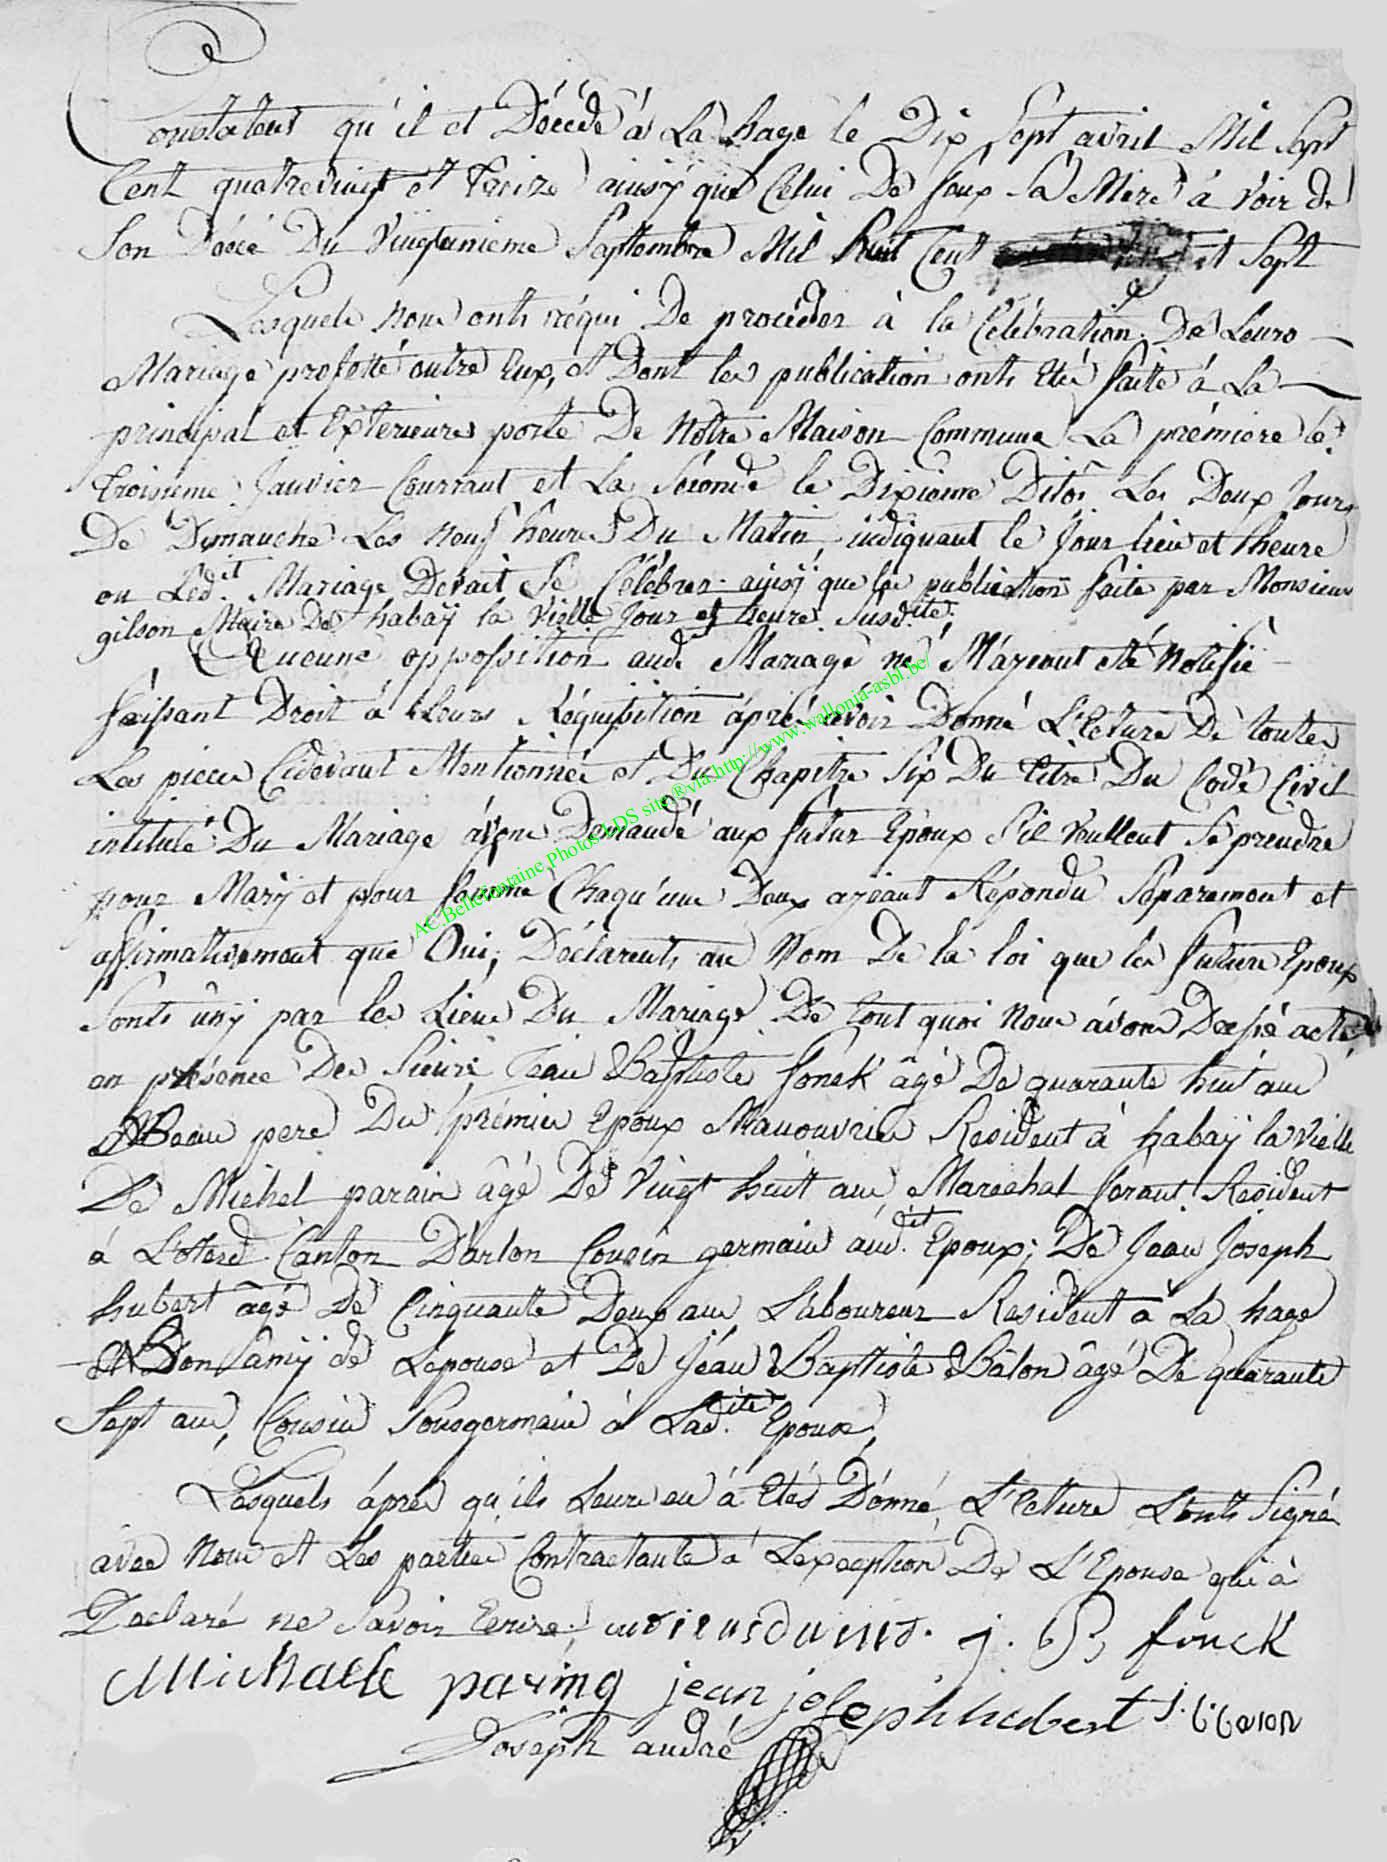 Constatent qu'il et Décédé á La hage le Dix Sept avril Mil Sept
Cent quatrevingt et Treize ainsÿ que Celui De feux Sa Mere á voir de
Son Décé Du Vingtunieme Septembre Mil Huit Cent et Sept
Lesquels Nous onts réqui De procéder à la Célébration De Leurs
Mariage projetté entre Eux, et Dont les publication onts Eté faite á La
principal et Exterieure porte De Notre Maison Commune La prémiere le
Troisieme Janvier Courrant et La Séconde le Dixieme Ditos Les Deux Jours
De Dimanche Les Neuf heures Du Matin, indiquant le Jour lieu et heure
ou Led.it Mariage Devait Se Célébrer ainsÿ que les publication faite par Monsieur
gilson Maire De habaÿ la Vielle Jour et heure Susdite,
Aucune oppossition aud. Mariage ne M'aÿeant été Notifié
faissant Droit á Leurs Réquisition áprés avoir Donné L'Ecture De toutes
Les pieces Cidevant Mentionnée et Du Chapitre Six Du titre Du Code Civil
intitulé Du Mariage ávons Demandé aux futur Epoux S'il veullent Se prendre
pour Marÿ et pour femme Chaqu'une Deux aÿeant Répondu Séparement et
affirmativement que Oui, Déclarents au Nom De la loi que les future Epoux
Sonts ûnÿ par les Liens Du Mariage De tout quoi Nous ávons Dressé acte
en présence Des Sieurs Jean Baptiste fonck âgé De quarante huit ans
Beau pere Du prémier Epoux Manouvrier Resident á habaÿ la Vielle
De Michel parain âgé De Vingt huit ans Marechal ferant Resident
á L'oterd Canton D'arlon Cousin germain áud.it Epoux; De Jean Joseph
hubert âgé De Cinquante Deux ans Laboureur Resident á La hage
Bon L'amÿ de L'epouse et De Jéan Baptiste Bâlon âgé De quarante
Sept ans, Cousin Sousgermain á Lad.ite Epouse,
Lesquels áprés qu'ils Leure en á Etés Dónné L'Ecture L'onts Signé
avec Nous et Les parties Contractante á L'exception De L'Epouse qui á
Declaré ne Savoir Ecrire. j. B fonck
Michaele paring jean joseph hubert
Joseph andré
AC.Bellefontaine Photos LDS site ® via.http://www.wallonia-asbl.be/